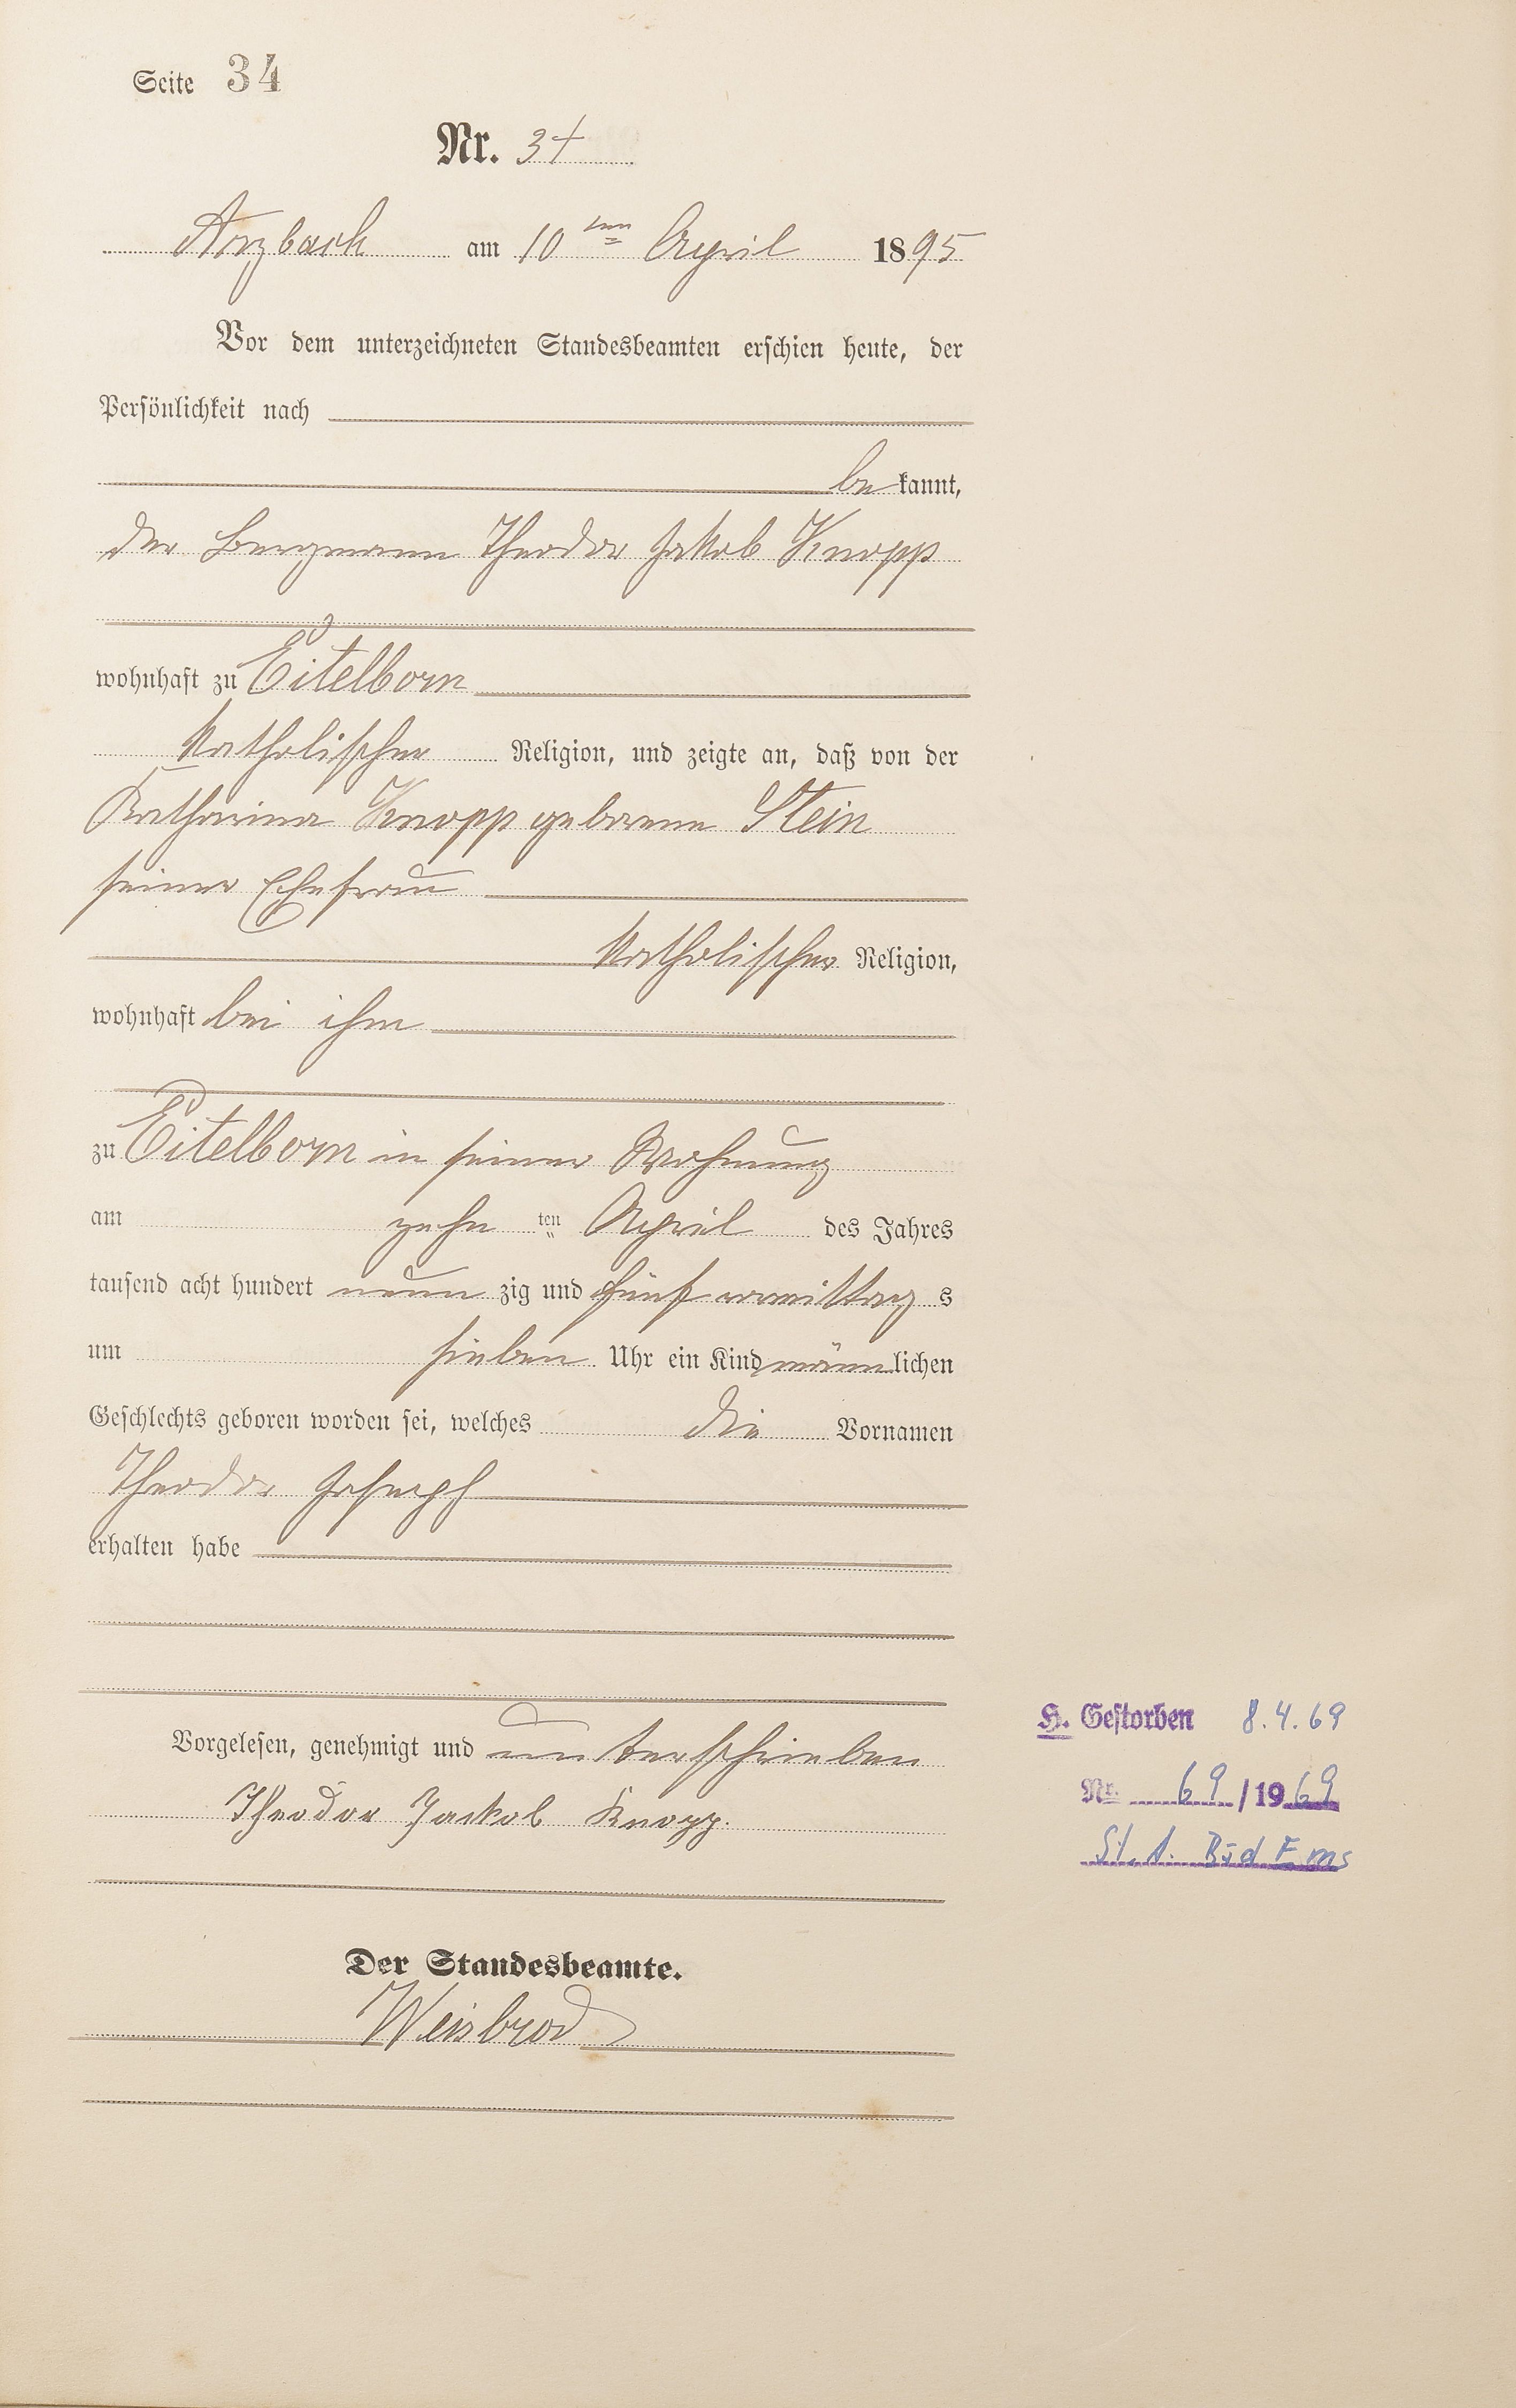 Seite 34
Nr. 34
Arzbach am 10ten April 1895
Vor dem unterzeichneten Standesbeamten erschien heute, der
Persönlichkeit nach
bekannt,
der Bergmann Theodor Jakob Knopp
wohnhaft zu Eitelborn
katholischer Religion, und zeigte an, daß von der
Katharina Knopp geborene Stein
seiner Ehefrau
katholischer Religion,
wohnhaft bei ihm
zu Eitelborn in seiner Wohnung
am zehn ten April des Jahres
tausend acht hundert neun zig und fünf vormittag s
um sieben Uhr ein Kind männlichen
Geschlechts geboren worden sei, welches die Vornamen
Theodor Joseph
erhalten habe
Vorgelesen, genehmigt und unterschrieben
Theodor Jackob Knopp.
Der Standesbeamte.
Weisbrod
H. Gestorben 8.4.69
Nr. 69/1969
St. A. Bad Ems